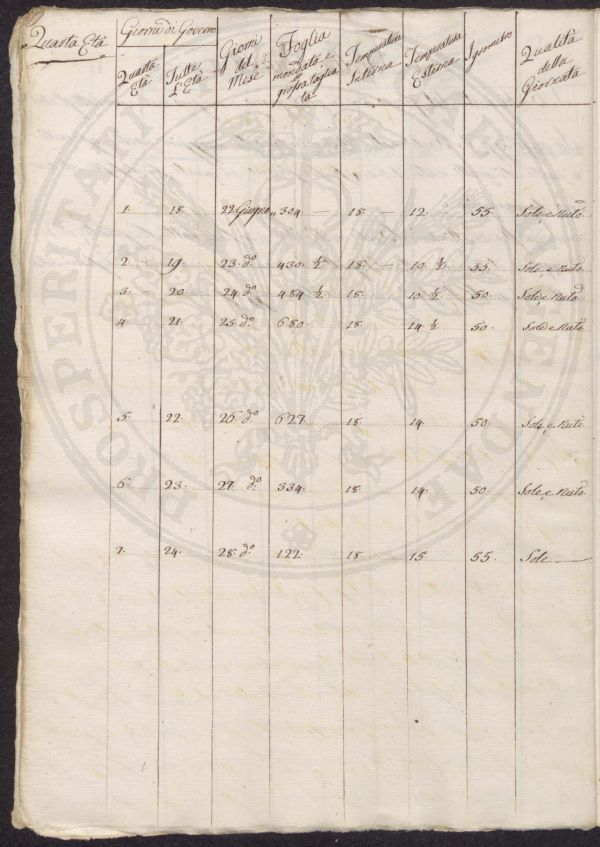 Quarta Età
Giorni di Governo
Quarta Età
Tutte L'Età
Giorni del Mese
Foglia mondata e grossa tagliata
Temperatura Interna
Temperatura Esterna
Igrometro
Qualità della Giornata
1. 18. 22 Giugno „ 304 — 18. — 12. — 55. Sole, e Nuto
2 19 23. do 430. ½ 18. — 10. ½. 55. Sole, e Nuto
3. 20. 24. do 484 ½. 18. 10. ½. 50. Sole e Nuto
4. 21. 25. do 680. 18. 14 ½ 50. Sole e Nuto
5. 22. 26. do 627. 18. 14. 50. Sole, e Nuto
6. 23. 27. do 334. 18. 14. 50. Sole, e Nuto
7. 24. 28. do 122. 18. 15. 55. Sole —
PROSPERITATI